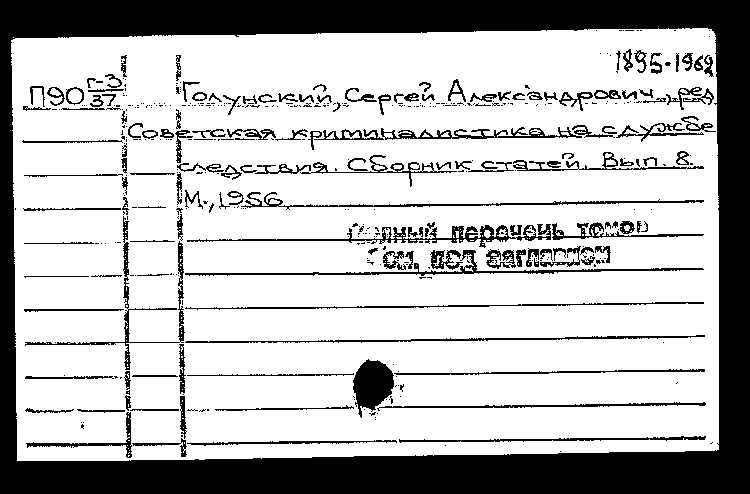 1895-1962
П90 Г-3/37 Голунский, Сергей Александрович, ред
Советская криминалистика на службе
следствия. Сборник статей. Вып. 8.
М., 1956.
Полный перечень томов
см. под заглавием